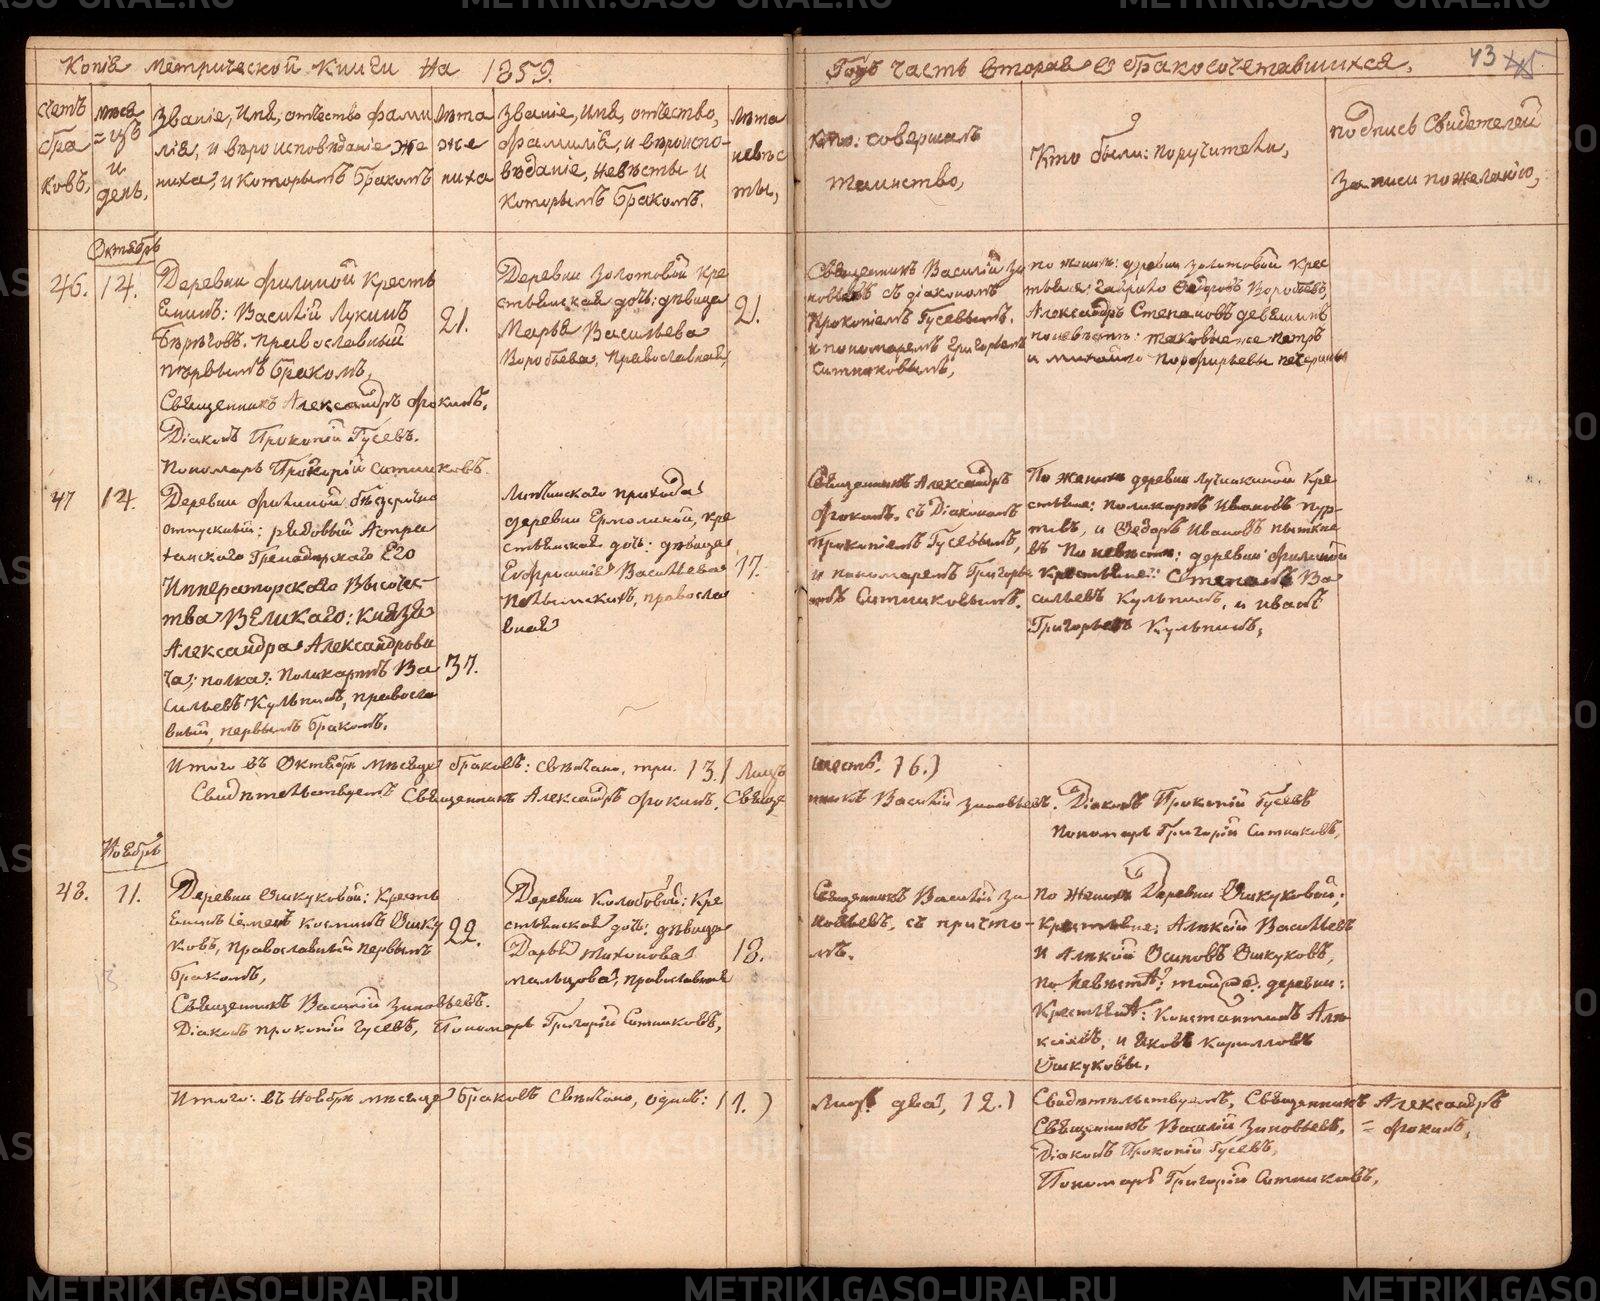 Копія метрической книги на 1859.
Годъ часть вторая о бракосочетавшихся.
43
Счетъ браковъ.
Мѣсяцъ и день.
Званіе, имя, отчество фами
лія, и вѣроисповѣданіе же
ниха, и которымъ бракомъ
Лѣта
же
ниха
Званіе, имя, отчество,
фамилія, и вѣроиспо-
вѣданіе, невѣсты и
которымъ бракомъ.
Лѣта
невѣс
ты,
Кто: совершалъ
таинство,
Кто были: поручители,
подпись свидетелей
записи по желанію,
Октябрь
46.
14.
Деревни Филиной Кресть
янинъ: Василій Лукинъ
православный
первымъ бракомъ,
Священникъ Александръ Фокинъ.
Діаконъ Прокопій Гусевъ.
Пономарь Ситниковъ.
21.
Деревни Золотовой кре
стьянская дочь: дѣвица
Марья Васильева
Воробьева, православная,
21.
Священникъ Василій Зи
новьевъ съ діакономъ
Прокопіемъ Гусевымъ.
и пономаремъ Григорьемъ
Ситниковымъ,
по женихѣ: деревни Золотовой крес
тьяне: Гаврило Федоровъ Воробьевъ,
Александръ Степановъ Девяшинъ
по невѣстѣ: таковые же Петръ
и Михайло Порфирьевы
47
14.
Деревни Филиной безсрочно
отпускный: рядовый Астра
ханского Гренадерскаго Его
Императорскаго Высочес-
тва Великаго: Князя
Александра Александрови
ча; полка: Поликарпъ Ва
сильевъ Кульпинъ, правосла
вный, первымъ бракомъ.
37.
прихода
деревни Ермолиной, кре
стьянская дочь: дѣвица
Евфросинія Васильева
правосла
вная
17.
Священникъ Александръ
Фокинъ. съ Діакономъ
Прокопіемъ Гусевымъ,
и пономаремъ Григорь
емъ Ситниковымъ.
По женихѣ деревни Лучинкиной Кре
стьяне: Поликарпъ Ивановъ Пур-
товъ, и Федоръ Ивановъ
въ По невѣстѣ: деревни Филиной
Крестьяне: Степанъ Ва
сильевъ Кульпинъ, и Иванъ
Григорьевъ Кульпинъ,
Итого въ Октябрѣ мѣсяцѣ браковъ: свѣнчано, три. (3.) Лицъ
шесть. (6.)
Свидѣтельствуетъ Священникъ Александръ Фокинъ. Свяще
нникъ Василій Зиновьевъ. Діаконъ Прокопій Гусевъ
Пономарь Григорій Ситниковъ,
Ноябрь
48.
11.
Деревни Ошкуковой: Кресть
янинъ Семенъ Косминъ Ошку
ковъ, православный первымъ
бракомъ,
Священникъ Василій Зиновьевъ.
Діаконъ Прокопій Гусевъ, Пономарь Григорій Ситниковъ,
22.
Деревни Колобовой: Кре
стьянская дочь: дѣвица
Дарья Тихонова
Мальцова, православная
18.
Священникъ Василій Зи
новьевъ, съ причто-
мъ.
по Женихѣ Деревни Ошкуковой;
Крестьяне: Алексій Васильевъ
и Алексій Осиповъ Ошкуковъ,
по Невѣстѣ: той же деревни:
Крестьяне: Константинъ Але
ксіевъ, и Яковъ Кирилловъ
Ошкуковы.
Итого: въ Ноябрѣ мѣсяцѣ браковъ свѣнчано, одинъ: (1.)
Лицъ два, (2.)
Свидѣтельствуетъ, Священникъ Александръ
Священникъ Василій Зиновьевъ, = Фокинъ,
Діаконъ Прокопій Гусевъ,
Пономарь Григорій Ситниковъ,
METRIKI.GASO-URAL.RU